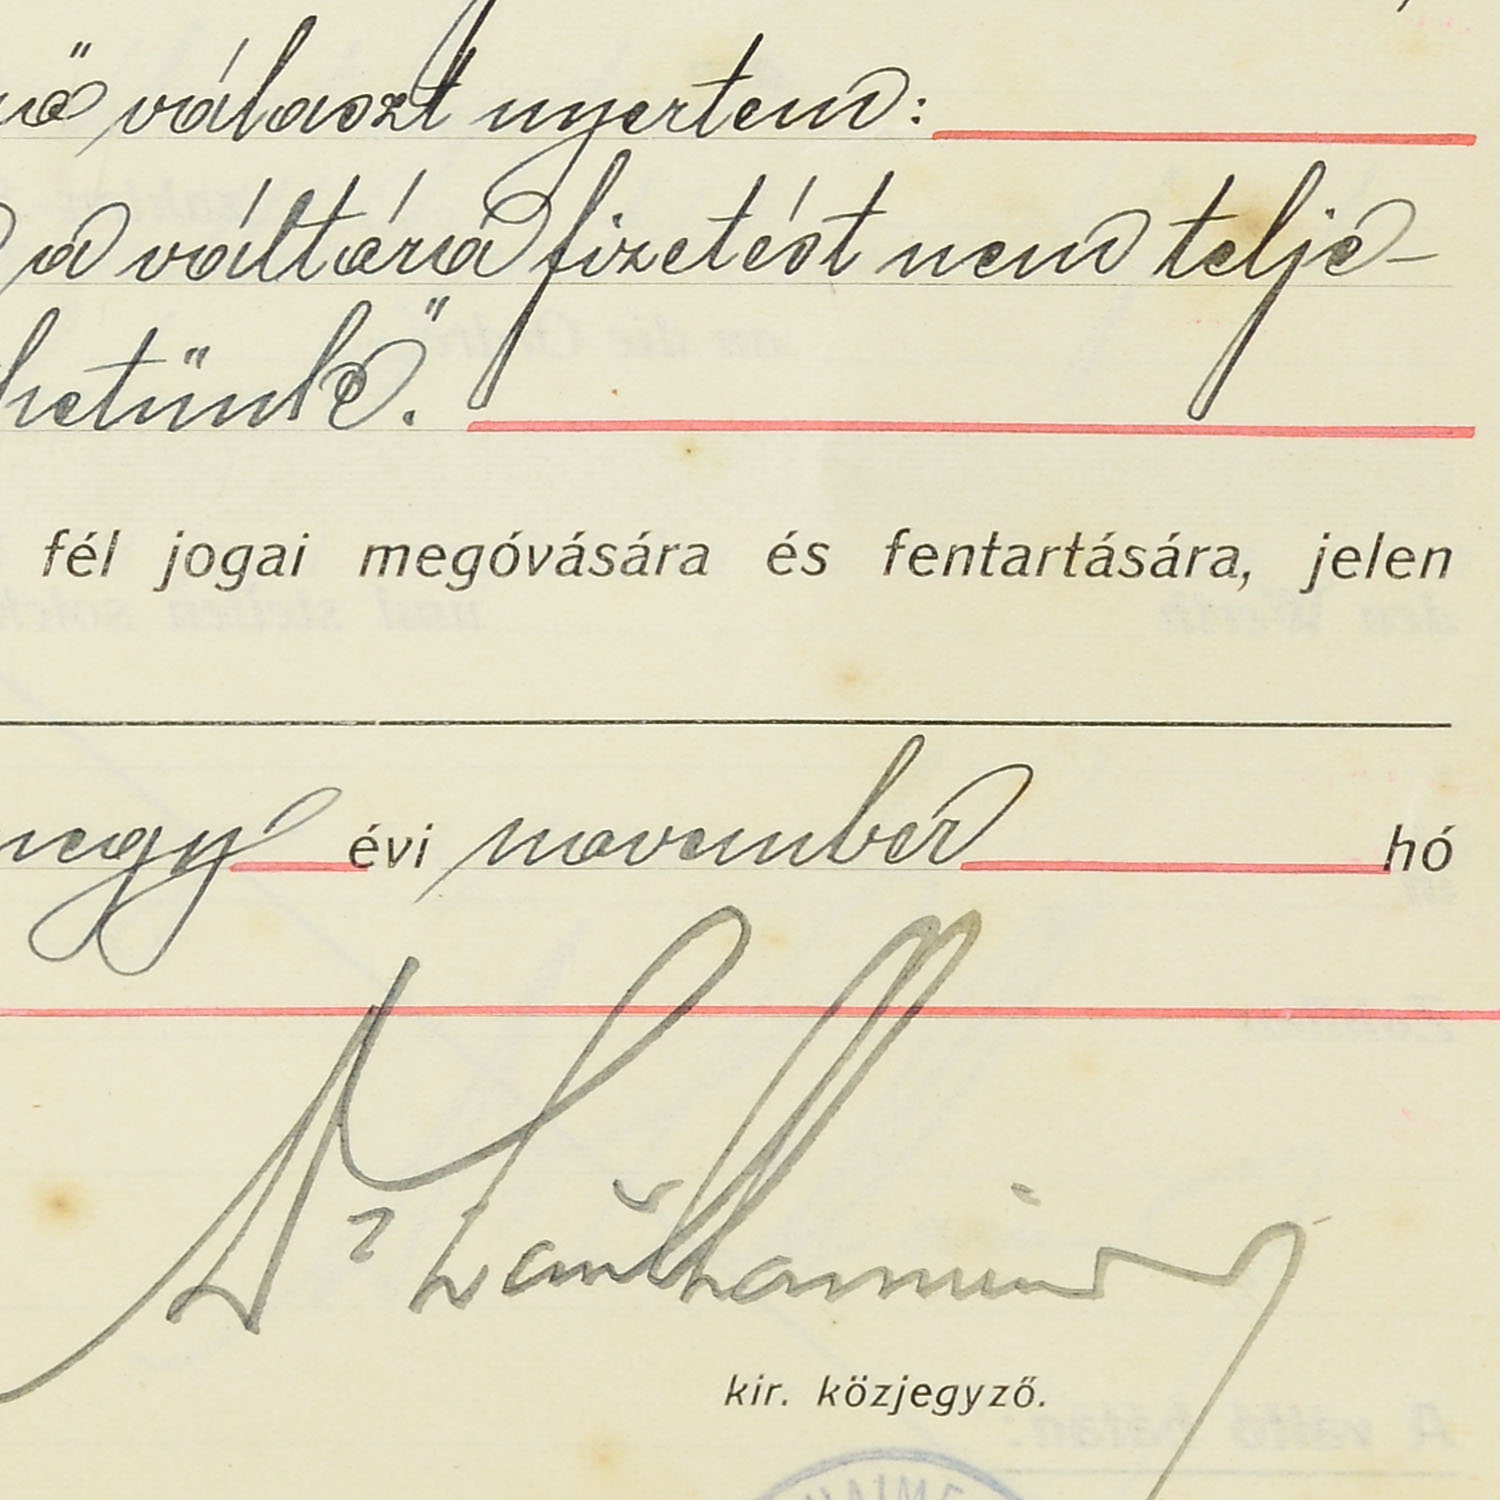 választ nyertem:
a váltóra fizetést nem telje-
hetünk."
fél jogai megóvására és fentartására, jelen
negy évi november hó
Dr
kir. közjegyző.